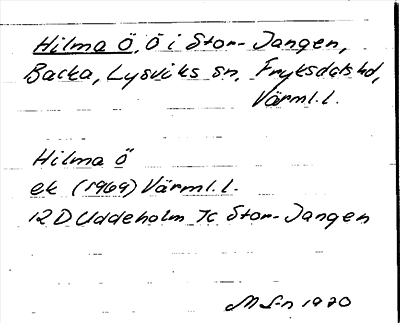 Hilma Ö, Ö i Stor-Jangen,
Backa, Lysviks sn, Fryksdals hd,
Värml. l.
Hilma Ö
ek (1969) Värml. l.
12 D Uddeholm 7c Stor-Jangen
M S-n 1970